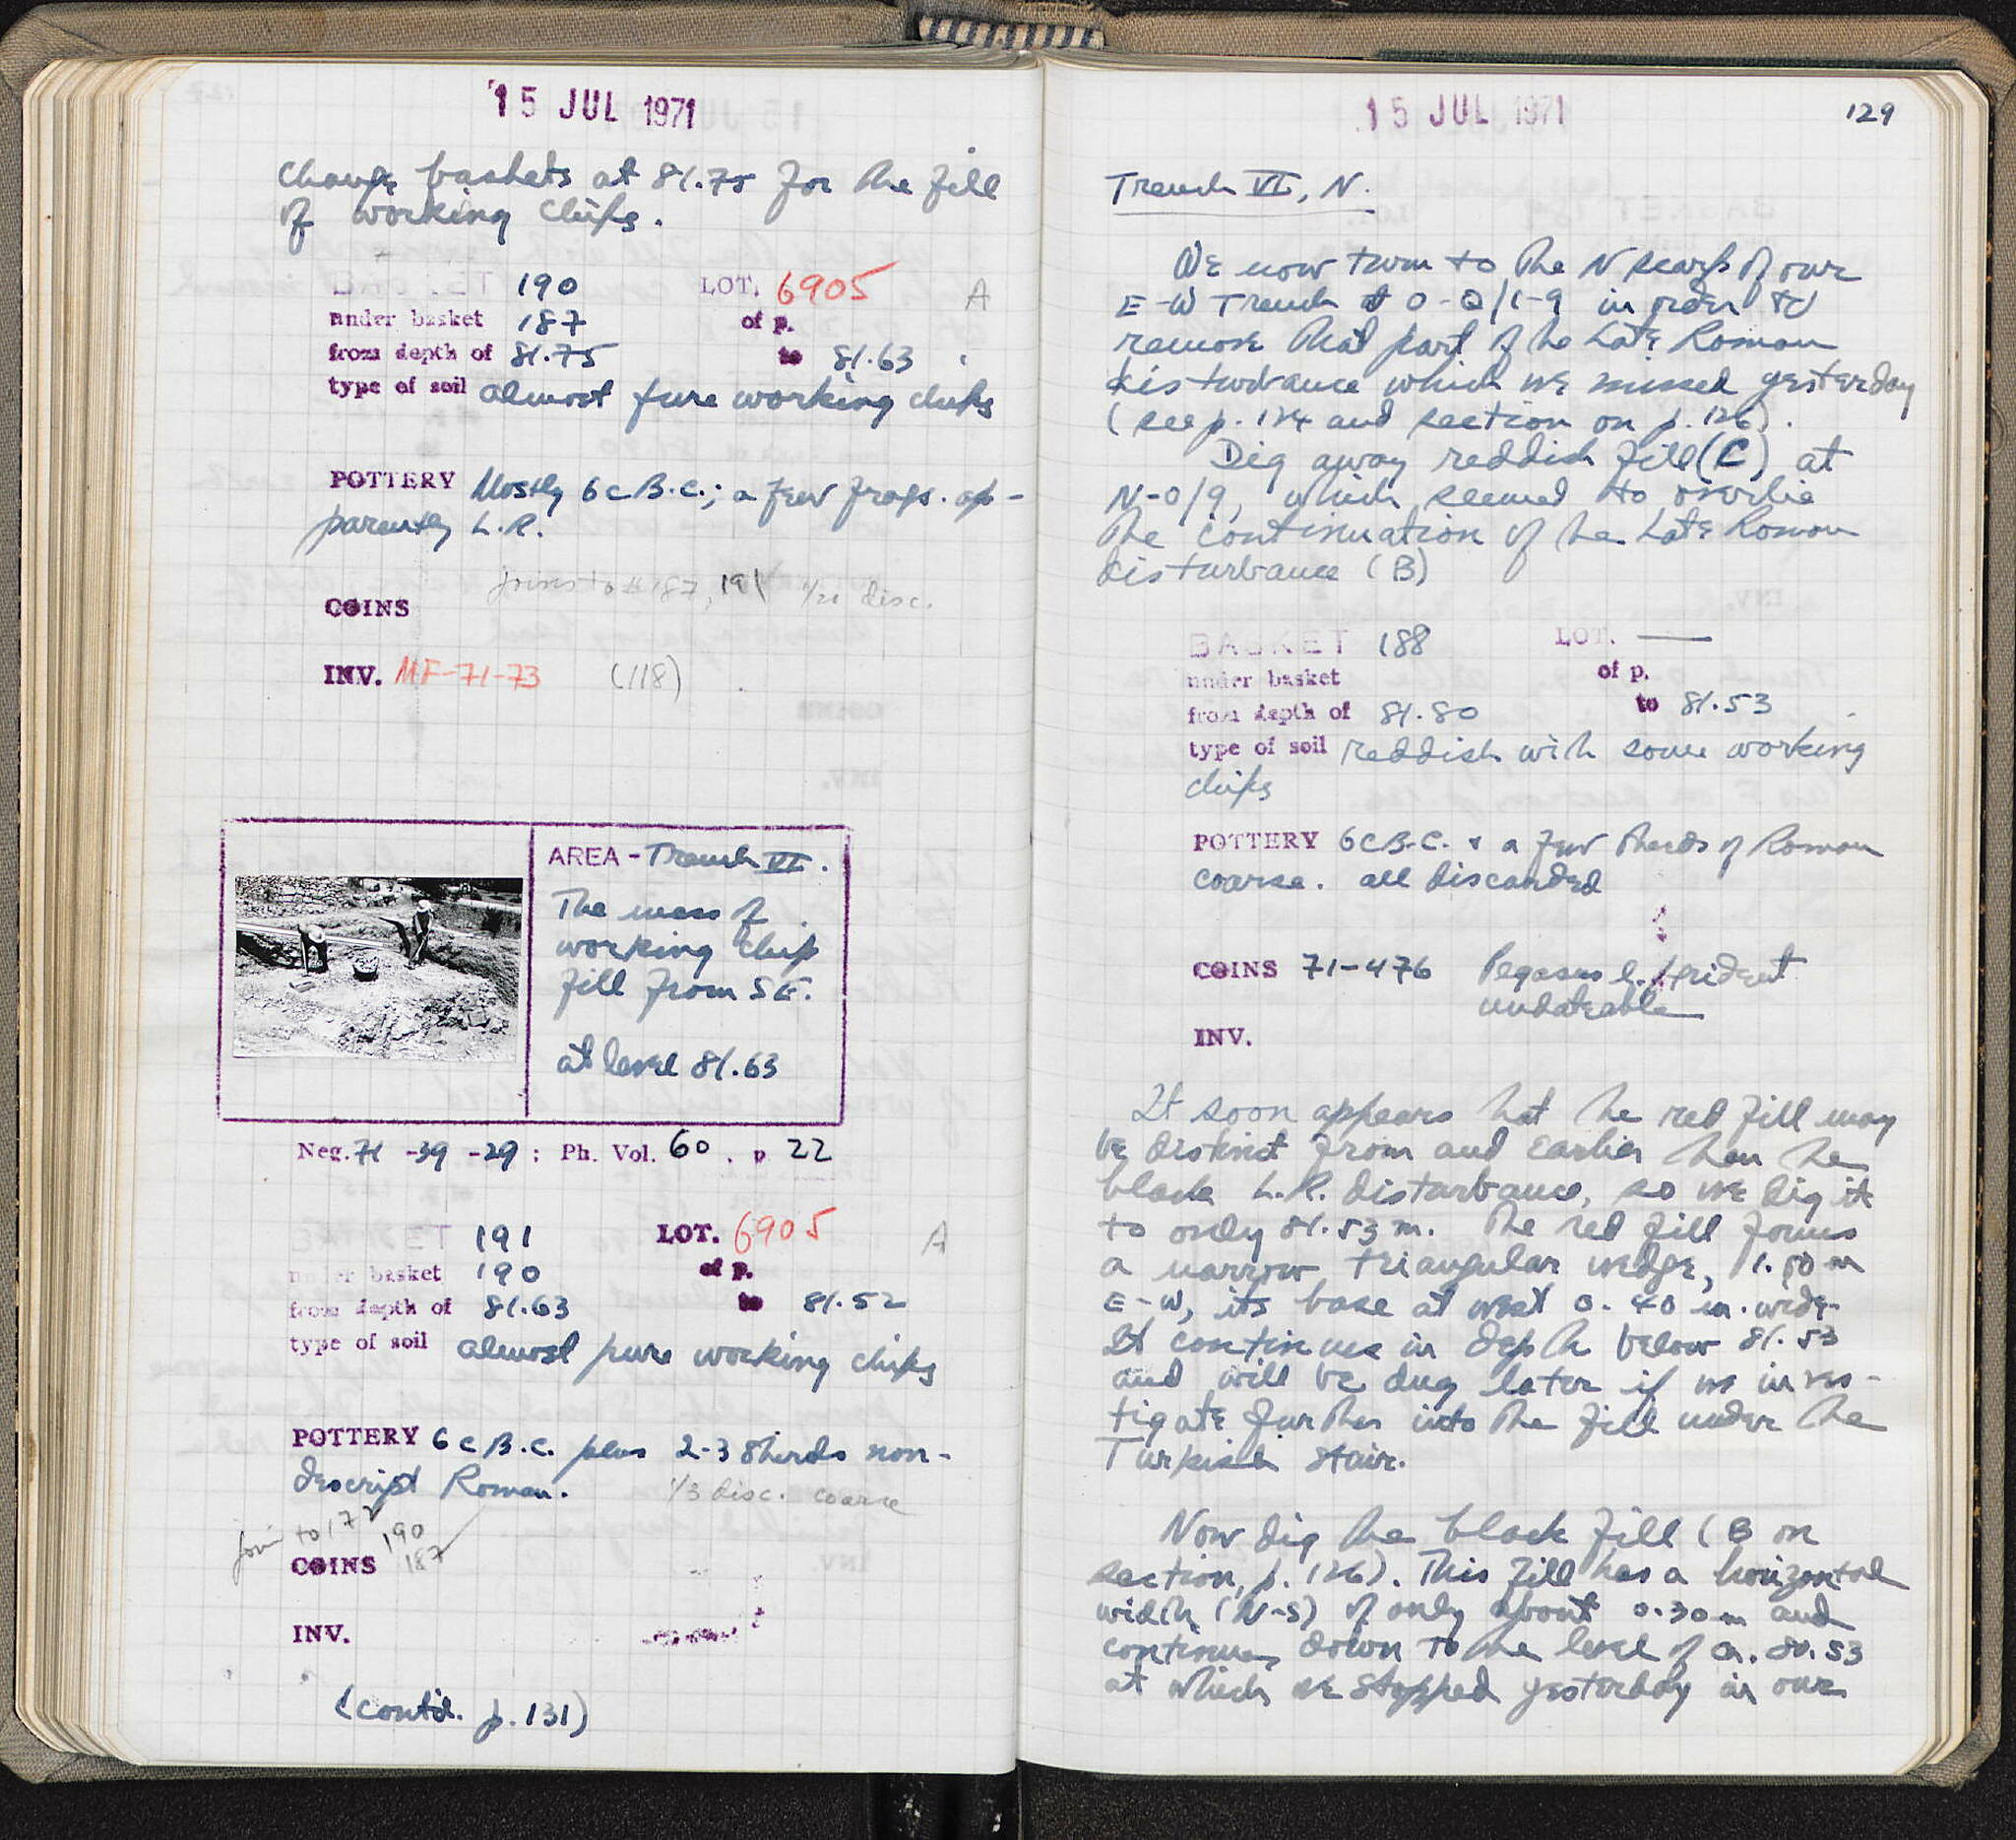 15 JUL 1971
Change baskets at 81.75 for the fill
of working chips.
BASKET 190 LOT. 6905 A
under basket 187 of p.
from depth of 81.75 to 81.63
type of soil almost pure working chips
POTTERY Mostly 6 c B.C.; a few frags. ap-
parently L.R.
joins to # 187, 191 disc.
COINS
INV. MF-71-73 (118)
AREA - Trench VI.
The mass of
working chip
fill from SE.
at level 81.63
Neg. 71 -39 -29 ; Ph. Vol. 60 . p 22
BASKET 191 LOT. 6905 A
under basket 190 of p.
from depth of 81.63 to 81.52
type of soil almost pure working chips
POTTERY 6 c B.C. plus 2-3 sherds non-
descript Roman. 1/3 disc. coarse
join to 172
190
187
COINS
INV.
(contd. p. 131)
15 JUL 1971
129
Trench VI, N.
We now turn to the N scarp of our
E-W Trench at O-Q/1-9 in order to
remove that part of the Late Roman
disturbance which we missed yesterday
(see p. 124 and section on p. 126).
Dig away reddish fill (C) at
N-O/9, which seemed to overlie
the continuation of the Late Roman
disturbance (B)
BASKET 188 LOT. —
under basket of p.
from depth of 81.80 to 81.53
type of soil reddish with some working
chips
POTTERY 6 c B.C. & a few sherds of Roman
coarse. all discarded
COINS 71-476 Pegasus l./trident
undateable
INV.
It soon appears that the red fill may
be distinct from and earlier than the
black L.R. disturbance, so we dig it
to only 81.53 m. The red fill forms
a narrow triangular wedge, 1.50 m
E-W, its base at west 0.40 m. wide.
It continues in depth below 81.53
and will be dug later if we inves-
tigate further into the fill under the
Turkish stair.
Now dig the black fill (B on
section, p. 126). This fill has a horizontal
width (N-S) of only about 0.30 m and
continues down to the level of a. 80.53
at which we stopped yesterday in our